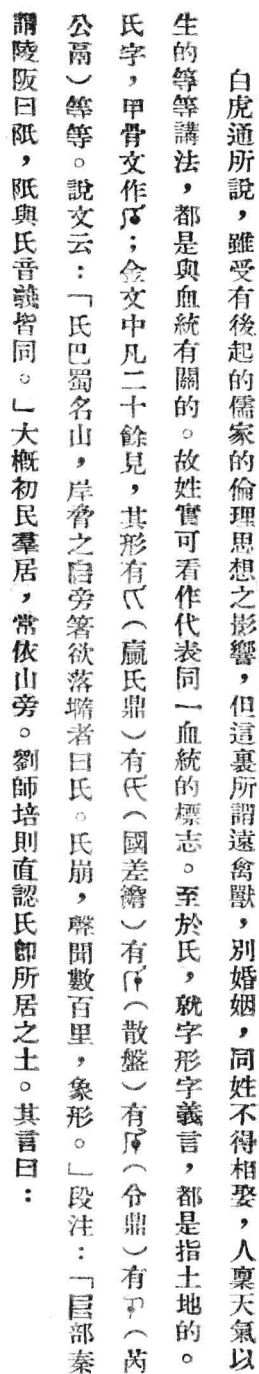 白虎通所說，雖受有後起的儒家的倫理思想之影響，但這裏所謂遠禽獸，別婚姻，同姓不得相娶，人稟天氣以
生的等等講法，都是與血統有關的。故姓實可看作代表同一血統的標志。至於氏，就字形字義言，都是指土地的。
氏字，甲骨文作；金文中凡二十餘見，其形有（鼎）有氏（國差𦉜）有（散盤）有（令鼎）有（芮
公鬲）等等。說文云：「氏巴蜀名山，岸脅之旁箸欲落墮者曰氏。氏崩，聲聞數百里，象形。」段注：「部秦
謂陵阪曰阺，阺與氏音義皆同。」大概初民羣居，常依山旁。劉師培則直認氏卽所居之土。其言曰：